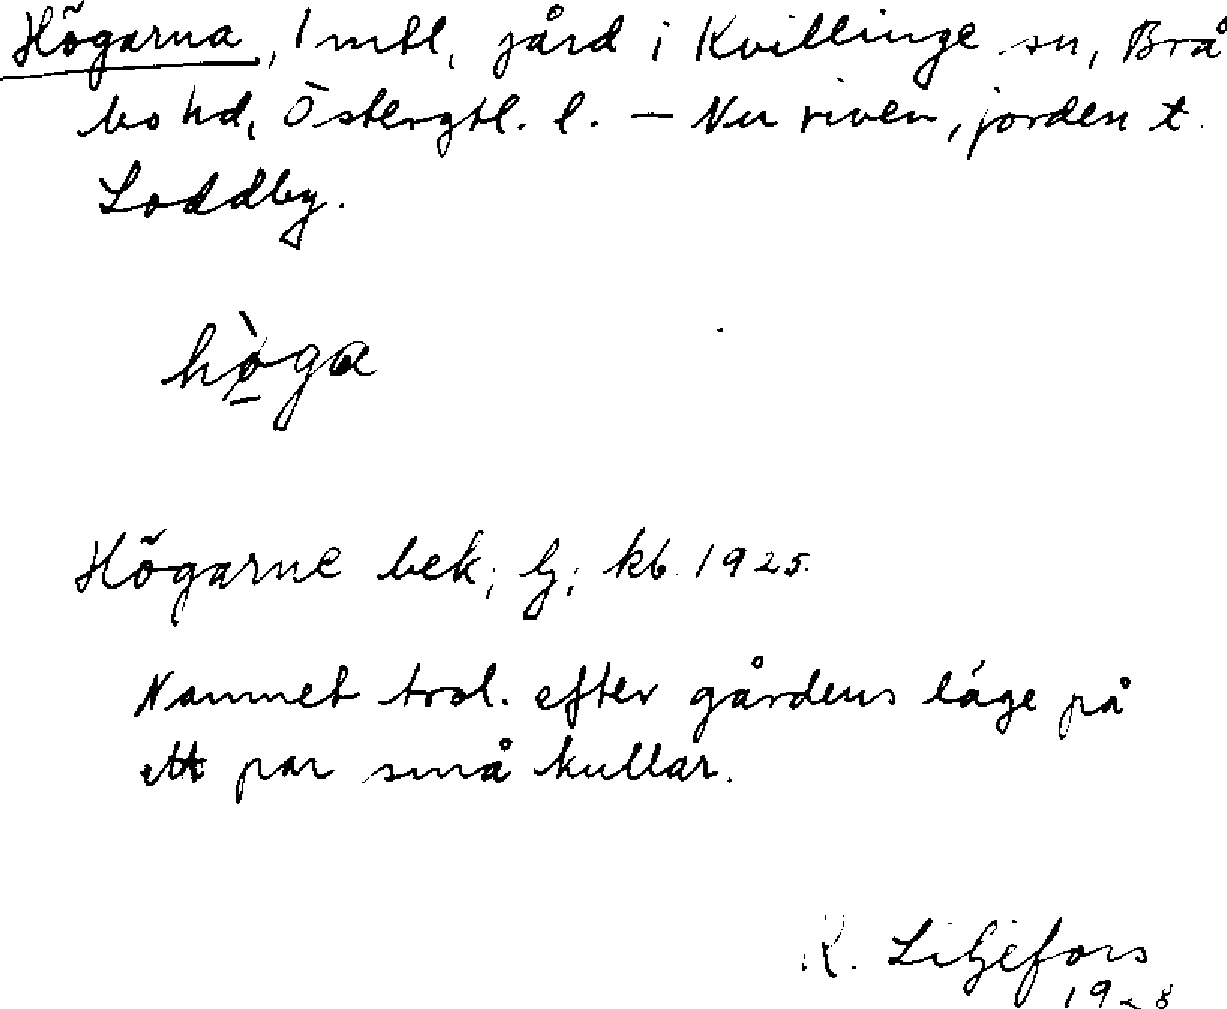 Högarna, 1 mtl, gård i Kvillinge sn, Brå
bo hd, Östergtl. l. — Nu riven, jorden t.
Loddby.
hø̀ga
Högarne bek; lj; kb. 1925.
Namnet trol. efter gårdens läge på
ett par små kullar.
R. Liljefors
1928